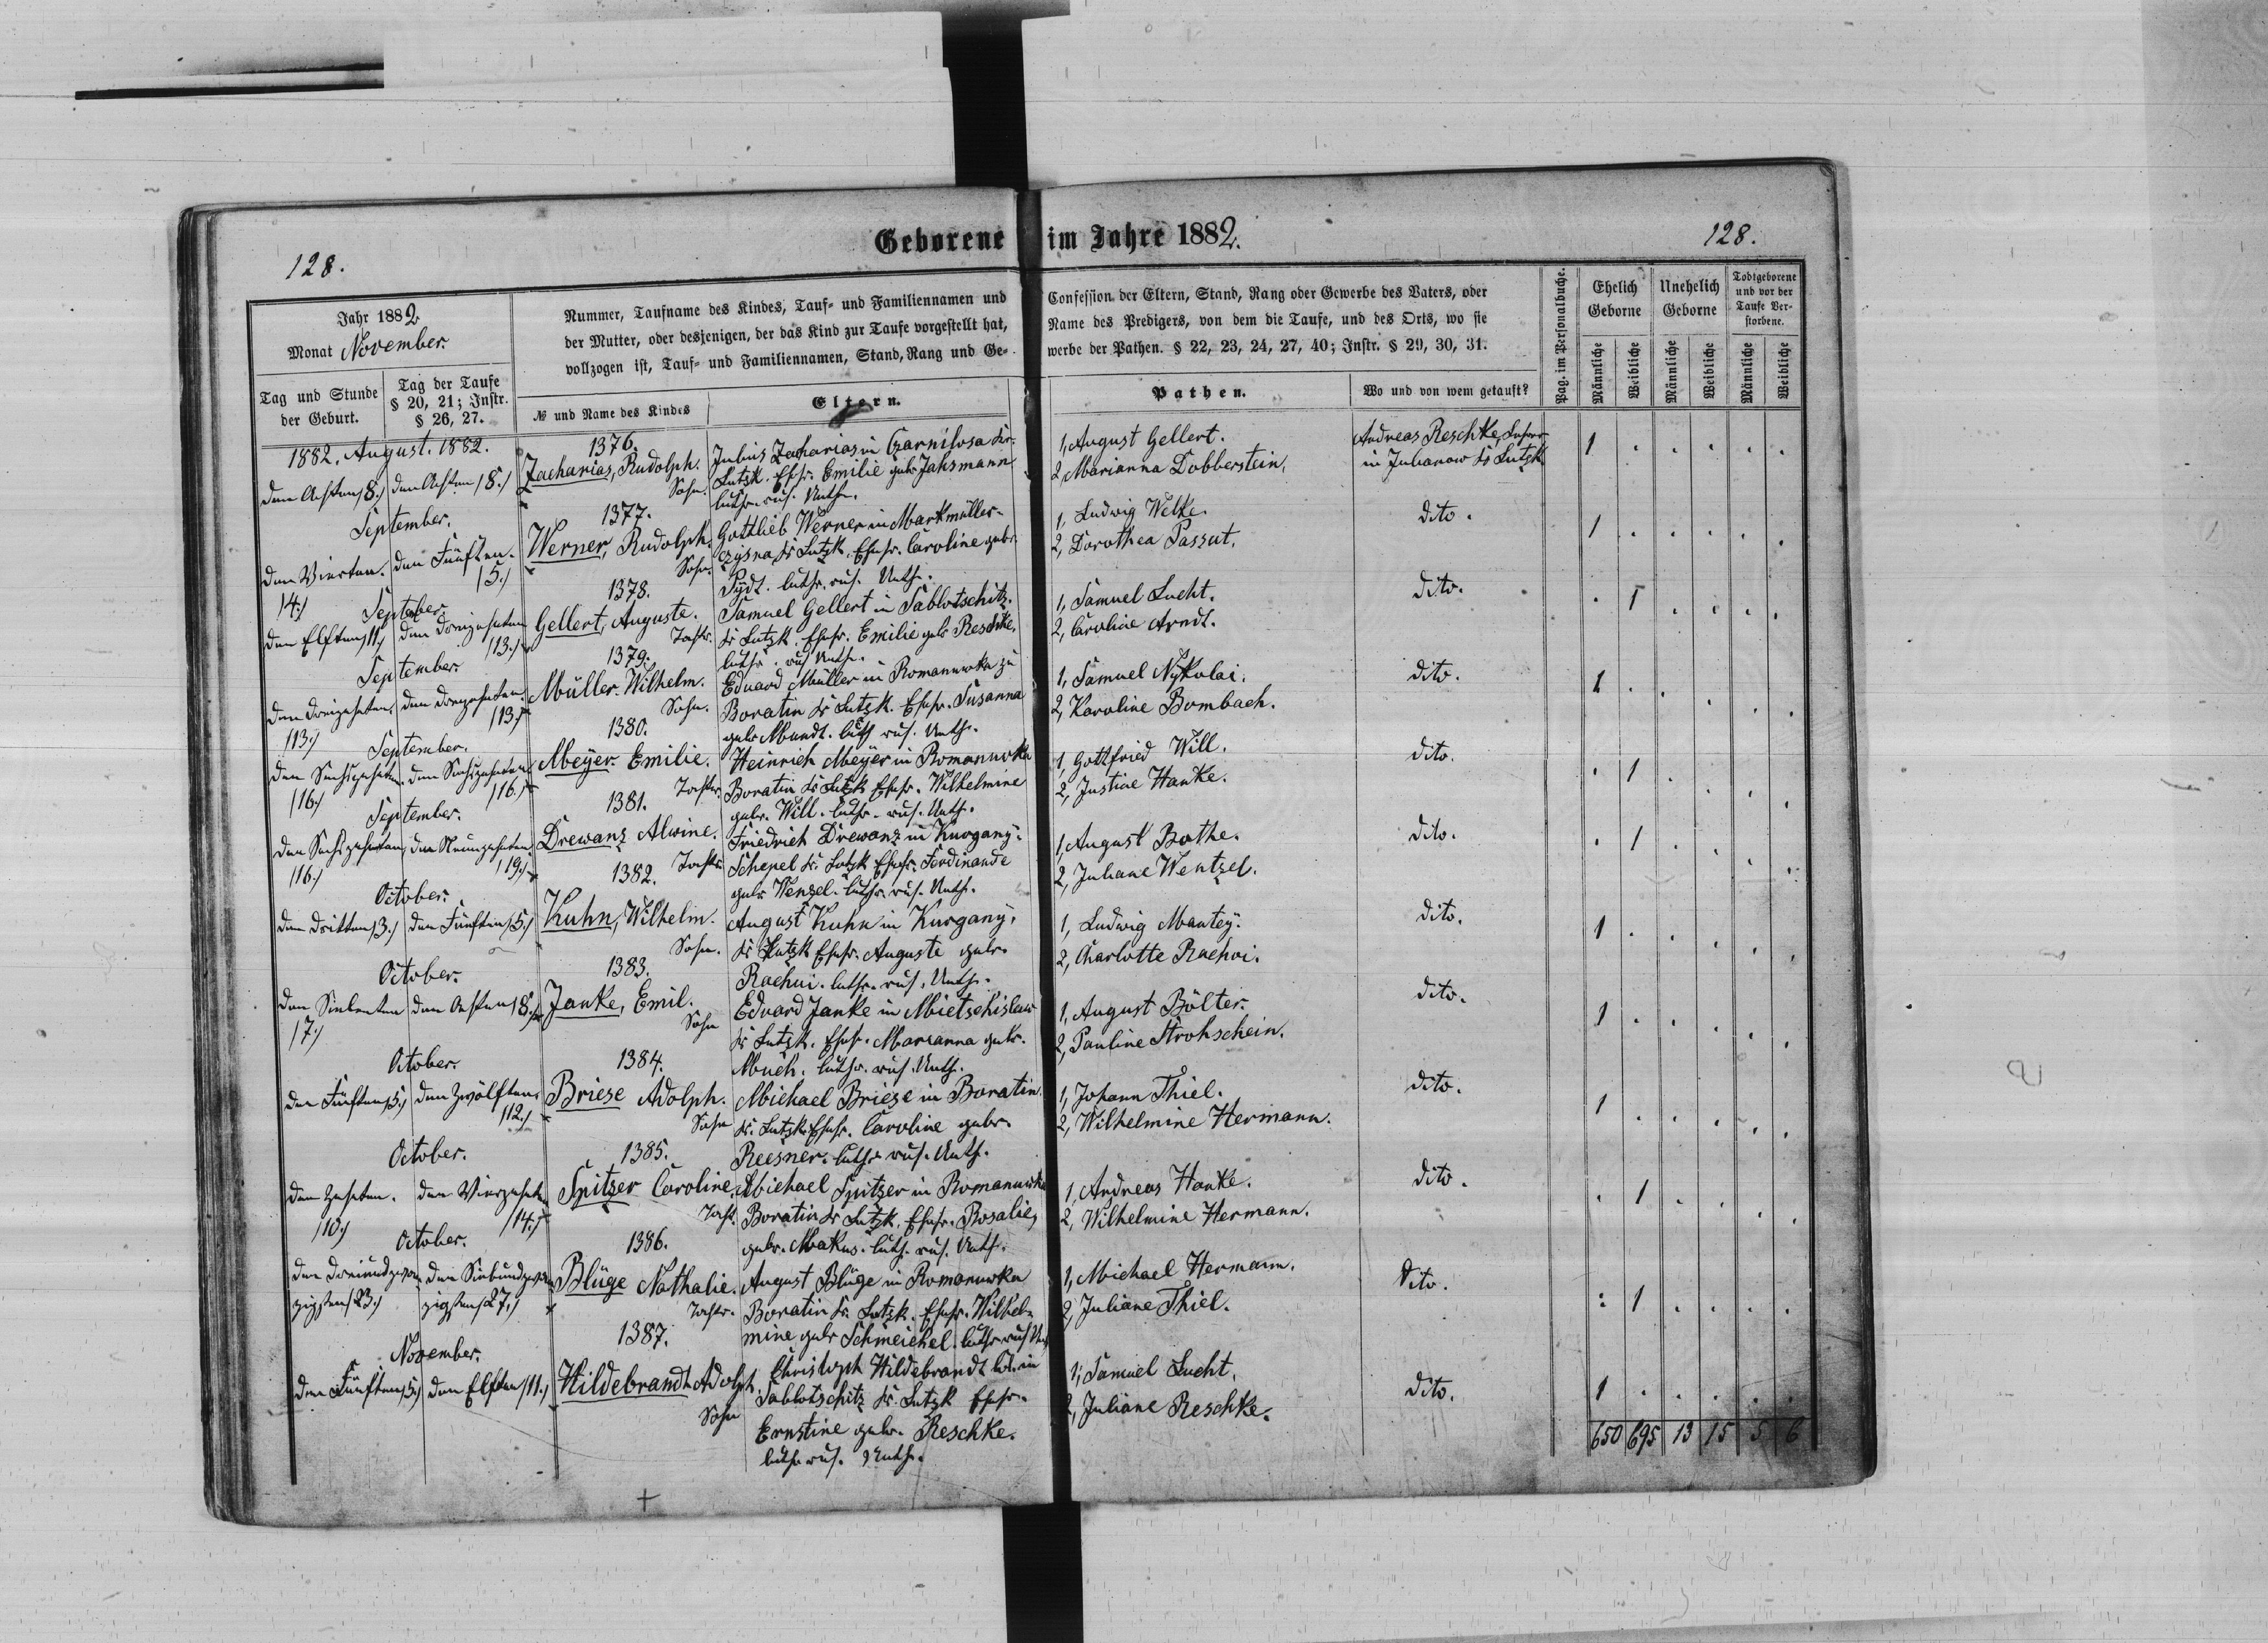 Geborene im Jahre 1882.
128.
128.
Jahr 1882
Monat November.
Tag und Stunde der Geburt.
Tag der Taufe § 20, 21; Instr. § 26, 27.
Nummer, Taufname des Kindes, Tauf- und Familiennamen und
der Mutter, oder desjenigen, der das Kind zur Taufe vorgestellt hat,
vollzogen ist, Tauf- und Familiennamen, Stand, Rang und Ge-
№ und Name des Kindes
Eltern.
Confession der Eltern, Stand, Rang oder Gewerbe des Vaters, oder
Name des Predigers, von dem die Taufe, und des Orts, wo sie
werbe der Pathen. § 22, 23, 24, 27, 40; Instr. § 29, 30, 31.
Pathen.
Wo und von wem getauft?
Pag. im Personalbuche.
Ehelich Geborne
Unehelich Geborne
Todtgeborene und vor der Taufe Verstorbene.
Männliche
Weibliche
Männliche
Weibliche
Männliche
Weibliche
1882. August. 1882.
den Achten /8./ den Achten /8./
1376.
Zacharias, Rudolph.
Sohn.
Julius Zacharias in Czarnilosa Kr.
Lutzk. Ehefr. Emilie geb. Jahsmann
luth. rus. Unth.
1, August Gellert.
2, Marianna Dobberstein.
Andreas Reschke,
in Julianow Kr Lutzk
1
September.
den Vierten. /4./ den Fünften. /5./
1377.
Werner, Rudolph.
Sohn.
Gottlieb Werner in Markmüller-
czysna Kr Lutzk. Ehefr. Caroline geb.
Pydt. luthr. rus. Unth.
1, Ludwig Welke.
2, Dorothea Passut.
dito.
1
September.
den Elften /11./ den Dreizehnten /13./
1378.
Gellert, Auguste.
Tochtr.
Samuel Gellert in Sablotschitz.
Kr Lutzk. Ehefr. Emilie geb Reschke,
luthr. rus Unth.
1, Samuel Lucht.
2, Caroline Arndt.
dito.
1
September
den Dreizehnten /13./ den Dreizehnten /13./
1379.
Müller. Wilhelm.
Sohn.
Eduard Müller in Romanuwka zu
Boratin Kr Lutzk. Ehefr. Susanna
geb. Mundt. luth rus. Unth.
1, Samuel Nykolai.
2, Karoline Bombach.
dito.
1
September.
den Sechszehnten /16./ den Sechszehnten /16./
1380.
Meyer. Emilie.
Tochtr.
Heinrich Meyer in Romanuwka
Boratin Kr Lutzk Ehefr. Wilhelmine
geb. Will. luthr. rus. Unth.
1, Gottfried Will.
2, Justine Hanke.
dito.
1
September.
den Sechszehnten /16./ den Neunzehnten /19./
1381.
Drewanz Alwine.
Tochtr.
Friedrich Drewanz in Kurgany-
Schepel Kr. Lutzk Ehefr. Ferdinande
geb. Wenzel. luthr. rus. Unth.
1, August Bathe.
2, Juliane Wentzel.
dito.
1
October.
den Dritten /3./ den Fünften /5./
1382.
Kuhn, Wilhelm.
Sohn.
August Kuhn in Kurgany,
Kr Lutzk Ehefr. Auguste geb.
Rachui. luthr. rus. Unth.
1, Ludwig Mantey.
2, Charlotte Rachoi.
dito.
1
October.
den Siebenten /7./ den Achten /8./
1383.
Janke, Emil.
Sohn
Eduard Janke in Mietschislaw
Kr Lutzk. Ehefr. Marianna geb.
Much. luthr. rus. Unth.
1, August Bölter.
2, Pauline Strohschein.
dito.
1
October.
den Fünften /5./ den Zwölften /12./
1384.
Briese Adolph.
Sohn
Michael Briese in Boratin.
Kr. Lutzk. Ehefr. Caroline geb.
Reesner. luthr rus. Unth.
1, Johann Thiel.
2, Wilhelmine Hermann.
dito.
1
October.
den Zehnten. /10./ den Vierzehnt. /14./
1385.
Spitzer Caroline
Tocht.
Michael Spitzer in Romanuwka
Boratin Kr Lutzk. Ehefr. Rosalie,
geb. Makus. luth. rus. Unth.
1, Andreas Hanke.
2, Wilhelmine Hermann.
dito.
1
October.
den Dreiundzwanzigsten /23./ den Siebundzwanzigsten /27./
1386.
Blüge Nathalie.
Tochtr.
August Blüge in Romanuwka
Boratin Kr. Lutzk. Ehefr. Wilhel-
mine geb Schmeichel. luthr rus Unth
1, Michael Hermann.
2, Juliane Thiel.
dito.
1
November.
den Fünften /5./ den Elften /11./
1387.
Hildebrandt Adolph.
Sohn
Christoph Hildebrandt in
Sablotschitz Kr. Lutzk Ehefr.
Ernstine geb. Reschke.
luthr rus. Unth.
1, Samuel Lucht.
2, Juliane Reschke.
dito.
1
650 695 13 15 5 6